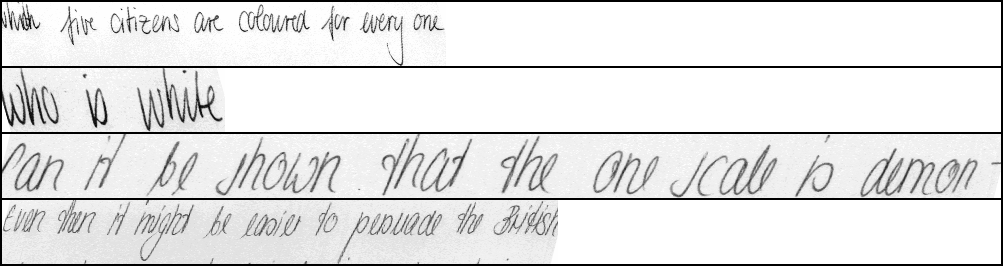 which five citizens are coloured for every one
who is white
Can it be shown that the one scale is demon-
Even then it might be easier to persuade the British